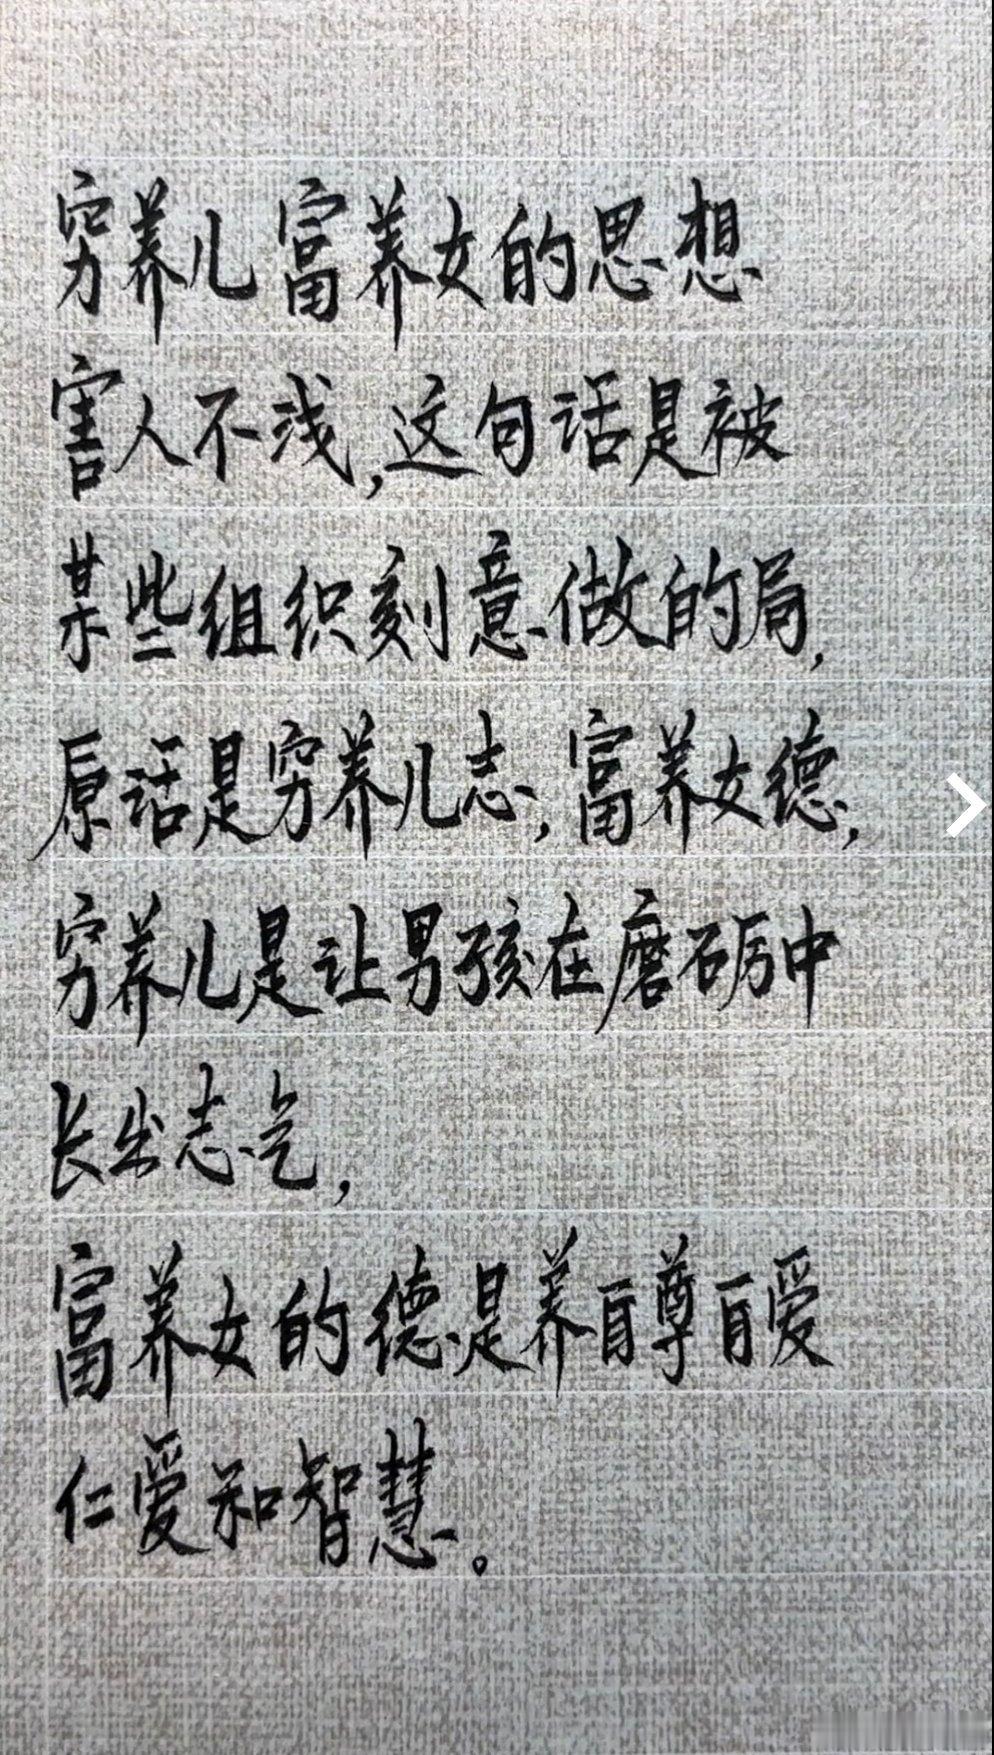 穷养儿富养女的思想
害人不浅,这句话是被
某些组织刻意做的局,
原话是穷养儿志,富养女德,
穷养儿是让男孩在磨砺中
长出志气,
富养女的德是养自尊自爱
仁爱和智慧。